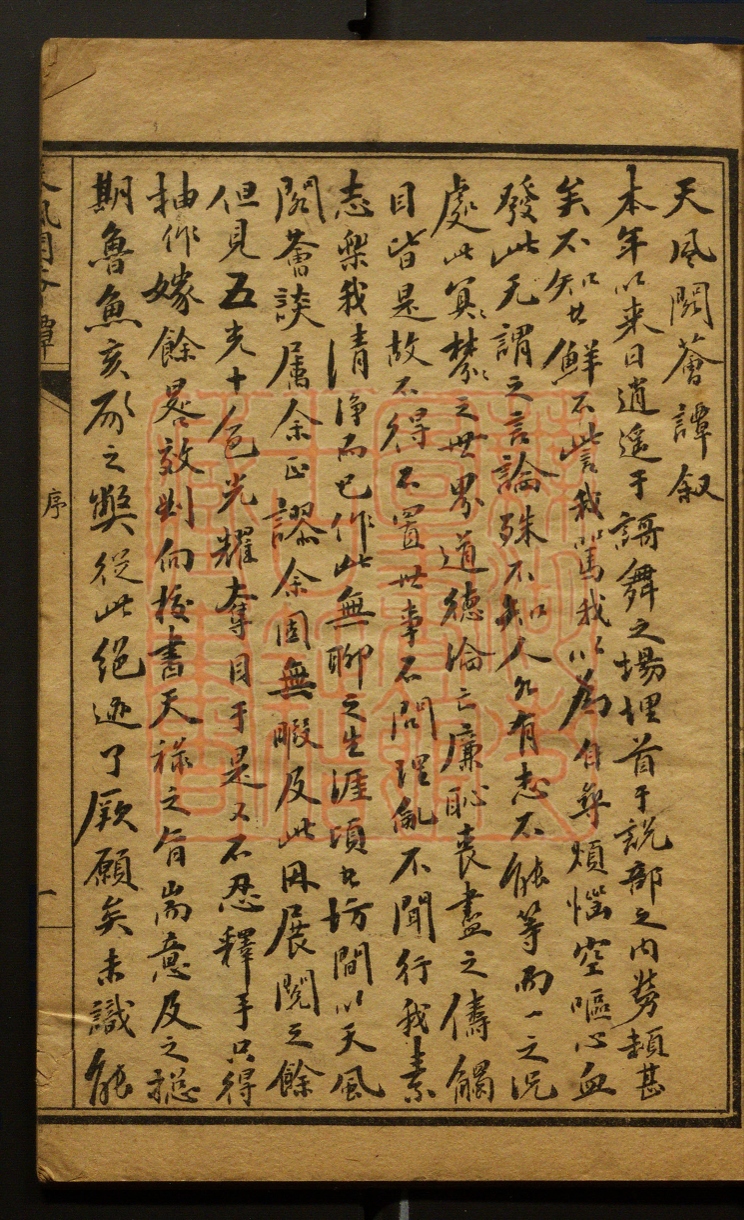 天風閣薈譚叙
本年以來日逍遙于謌舞之場埋首于説部之内勞頓甚
矣不知者鮮不訾我罵我以為自尋煩惱空嘔心血
發此无謂之言論殊不知人各有志不能等而一之况
處此冥冥棼棼之世界道德淪亡廉恥喪盡之儔觸
目皆是故不得不置世事不問理亂不聞行我素
志樂我清浄而已作此無聊之生涯頃者坊間以天風
閣薈談属余正謬余固無暇及此毋展閲之餘
但見五光十色光耀奪目于是又不忍釋手只得
抽作嫁餘晷效劉向校書天禄之旨耑意及之聦
期魯魚亥豕之獘從此絕迹了厥願矣未識能
天風閣薈譚
序
一